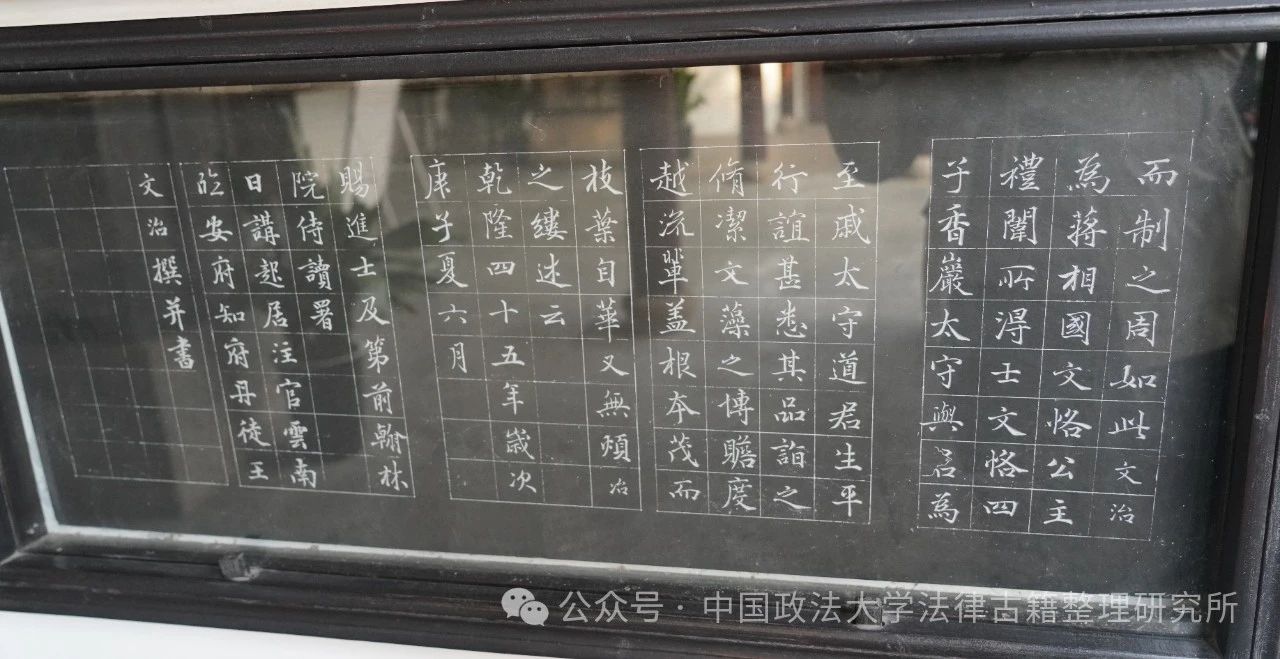 而制之周如此文治
為蔣相國文恪公主
禮闈所得士文恪四
子香巖太守與君為
至戚太守道君生平
行誼甚悉其品詣之
脩潔文藻之博贍度
越流輩蓋根本茂而
枝葉自華又無煩治
之縷述云
乾隆四十五年歲次
庚子夏六月
賜進士及第前翰林
院侍讀署
日講起居注官雲南
臨安府知府丹徒王
文治撰并書
公众号·中国政法大学法律古籍整理研究所